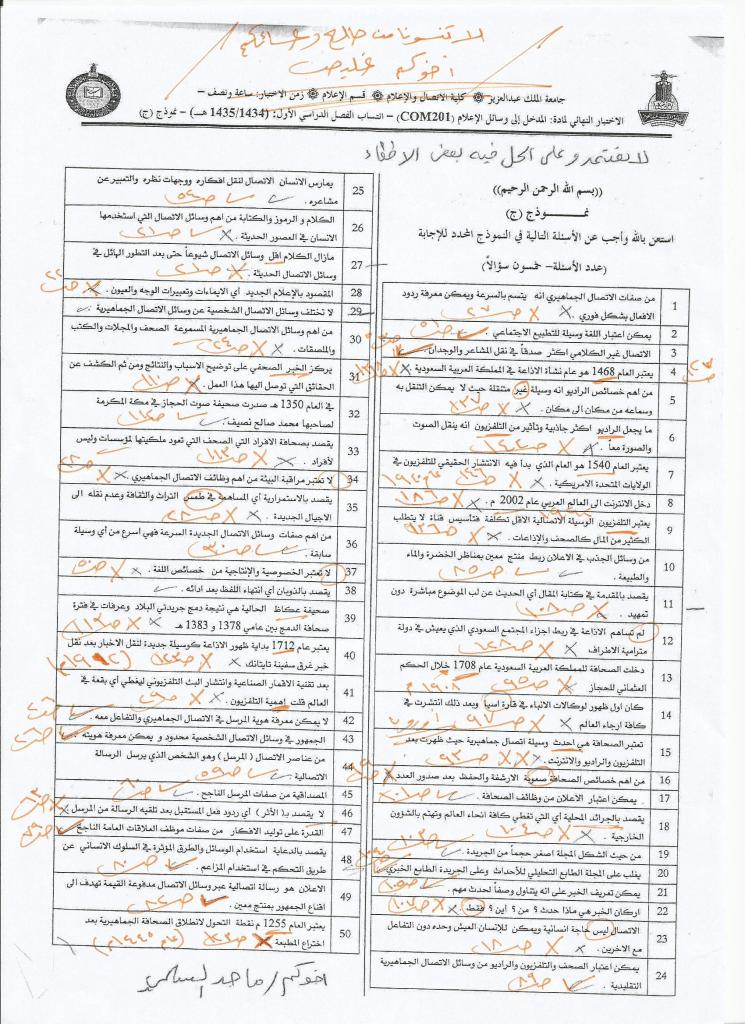 لا تنسونا من صالح دعائكم
اخوكم
جامعة الملك عبدالعزيز ۞ كلية الاتصال والإعلام ۞ قسم الإعلام ۞ زمن الاختبار: ساعة ونصف –
الاختبار النهائي لمادة: المدخل إلى وسائل الإعلام (COM201) – انتساب الفصل الدراسي الأول: (1435/1434 هـ) – نموذج (ج)
لا يعتمد وعلى الحل فيه بعض الاخطاء
((بسم الله الرحمن الرحيم))
نمـــــوذج (ج)
استعن بالله وأجب عن الأسئلة التالية في النموذج المحدد للإجابة
(عدد الأسئلة– خمسون سؤالاً)
1 من صفات الاتصال الجماهيري انه يتسم بالسرعة ويمكن معرفة ردود
الافعال بشكل فوري . X
2 يمكن أعتبار اللغة وسيلة للتطبيع الاجتماعي .
3 الاتصال غير الكلامي اكثر صدقاً في نقل المشاعر والوجدان.
4 يعتبر العام 1468 هو عام نشأة الاذاعة في المملكة العربية السعودية . X
5 من خصائص الراديو انه وسيلة غير متنقلة حيث لا يمكن التنقل به
وسماعه من مكان الى مكان. X
6 ما يجعل الراديو اكثر جاذبية وتأثير من التلفزيون انه ينقل الصوت
والصورة معاً . X
7 يعتبر العام 1540 هو العام الذي بدأ فيه الانتشار الحقيقي للتلفزيون في
الولايات المتحدة الامريكية . X
8 دخل الانترنت الى العالم العربي عام 2002 م . X
9 يعتبر التلفزيون الوسيلة الاتصالية الاقل تكلفة فتأسيس قناة لا يتطلب
الكثير من المال كالصحف والإذاعات . X
10 من وسائل الجذب في الاعلان ربط منتج معين بمناظر الخضرة والماء
والطبيعة . ص٨٥
11 يقصد بالمقدمة في كتابة المقال أي الحديث عن لب الموضوع مباشرة دون
تمهيد . X ص١٠٨
12 لم تساهم الاذاعة في ربط اجزاء المجتمع السعودي الذي يعيش في دولة
مترامية الاطراف X
13 دخلت الصحافة للمملكة العربية السعودية عام 1708 خلال الحكم
العثماني للحجاز X ص٩٥ ١٩٠٨م
14 كان اول ظهور لوكالات الانباء في قارة اسيا وبعد ذلك انتشرت في
كافة ارجاء العالم X
15 تعتبر الصحافة هي احدث وسيلة اتصال جماهيرية حيث ظهرت بعد
التلفزيون والراديو والانترنت. X ص٩٣
16 من اهم خصائص الصحافة صعوبة الارشفة والحفظ بعد صدور العدد X
17 يمكن أعتبار الاعلان من وظائف الصحافة .
18 يقصد بالجرائد المحلية أي التي تغطي كافة انحاء العالم وتهتم بالشؤون
الخارجية . X ص١٠٤
19 من حيث الشكل المجلة اصغر حجماً من الجريدة. ص١٠٣
20 يغلب على المجلة الطابع التحليلي للأحداث وعلى الجريدة الطابع الخبري
21 يمكن تعريف الخبر على انه يتناول وصفاً لحدث مهم .
22 اركان الخبر هي ماذا حدث ؟ من ؟ أين ؟ فقط . X
23 الاتصال ليس حاجة انسانية ويمكن للإنسان العيش وحده دون التفاعل
مع الاخرين . X ص١٨
24 يمكن أعتبار الصحف والتلفزيون والراديو من وسائل الاتصال الجماهيرية
التقليدية . ص٨٩
25 يمارس الانسان الاتصال لنقل افكاره ووجهات نظره والتعبير عن
مشاعره . ص٥٤
26 الكلام و الرموز والكتابة من اهم وسائل الاتصال التي استخدمها
الانسان في العصور الحديثة . X ص٢١
27 مازال الكلام اقل وسائل الاتصال شيوعاً حتى بعد التطور الهائل في
وسائل الاتصال الحديثة . X ص٢١
28 المقصود بالإعلام الجديد أي الايماءات وتعبيرات الوجه والعيون . X ص٢٢
29 لا تختلف وسائل الاتصال الشخصية عن وسائل الاتصال الجماهيرية .
30 من اهم وسائل الاتصال الجماهيرية المسموعة الصحف والمجلات والكتب
والملصقات . X ص٢٤
31 يركز الخبر الصحفي على توضيح الاسباب والنتائج ومن ثم الكشف عن
الحقائق التي توصل اليها هذا العمل . X
32 في العام 1350 هـ صدرت صحيفة صوت الحجاز في مكة المكرمة
لصاحبها محمد صالح نصيف.
33 يقصد بصحافة الافراد التي الصحف التي تعود ملكيتها لمؤسسات وليس
لأفراد . X ص١١٣
34 لا تعتبر مراقبة البيئة من اهم وظائف الاتصال الجماهيري . X
35 يقصد بالاستمرارية أي المساهمة في طمس التراث والثقافة وعدم نقله الى
الاجيال الجديدة . X ص٢٨
36 من اهم صفات وسائل الاتصال الجديدة السرعة فهي اسرع من أي وسيلة
سابقة . ص٣٠
37 لا تعتبر الخصوصية والإنتاجية من خصائص اللغة . X ص٥٠
38 يقصد بالذوبان أي انتهاء اللفظ بعد ادائه .
39 صحيفة عكاظ الحالية هي نتيجة دمج جريدتي البلاد وعرفات في فترة
صحافة الدمج بين عامي 1378 و 1383 هـ X
40 يعتبر عام 1712 بداية ظهور الاذاعة كوسيلة جديدة لنقل الاخبار بعد نقل
خبر غرق سفينة تايتانك X (١٩١٢م)
41 بعد تقنية الاقمار الصناعية وانتشار البث التلفزيوني ليغطي أي بقعة في
العالم قلت اهمية التلفزيون . X
42 لا يمكن معرفة هوية المرسل في الاتصال الجماهيري والتفاعل معه .
43 الجمهور في وسائل الاتصال الشخصية محدود و يمكن معرفة هويته .
44 من عناصر الاتصال ( المرسل ) وهو الشخص الذي يرسل الرسالة
الاتصالية : ص٥٩
45 المصداقية من صفات المرسل الناجح . ص٦٠
46 لا يقصد بـ( الأثر ) أي ردود فعل المستقبل بعد تلقيه الرسالة من المرسل X
47 القدرة على توليد الافكار من صفات موظف العلاقات العامة الناجح
48 يقصد بالدعاية استخدام الوسائل والطرق المؤثرة في السلوك الانساني عن
طريق التحكم في استخدام المزاعم . ص٨٠
49 الاعلان هو رسالة اتصالية عبر وسائل الاتصال مدفوعة القيمة تهدف الى
اقناع الجمهور بمنتج معين . ص٨٢
50 يعتبر العام 1255 م نقطة التحول لانطلاق الصحافة الجماهيرية بعد
اختراع المطبعة X (عام ١٤٤٥م)
اخوكم / ماجد السلمي